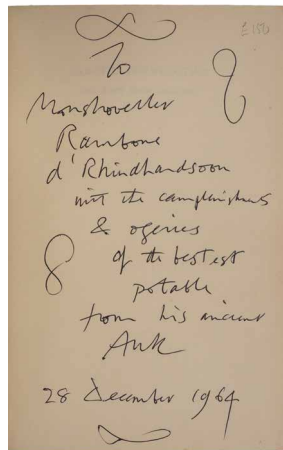 £180
To
Monshoveller
Rambone
d'Rhindhandsoon
mit the complenshuns
& ogeries
of the bestest
potable
from his ancient
Auk
28 December 1964